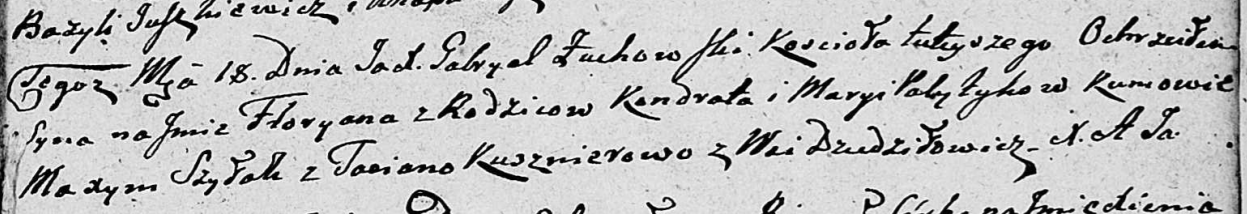 Bazyli Juszkiewicz i
Tegoż Mją 18. Dnia Ja X. Gabryel Żuchowski Kościoła tuteyszego Ochrzciłem
Syna na Jmie Floryana z Rodzicow Kondrata i Maryi Kumowie
Maxym Szyłak z Tacianą Kusznierowo z Wsi Dzudziłowicz N. A Ja
na Jmie